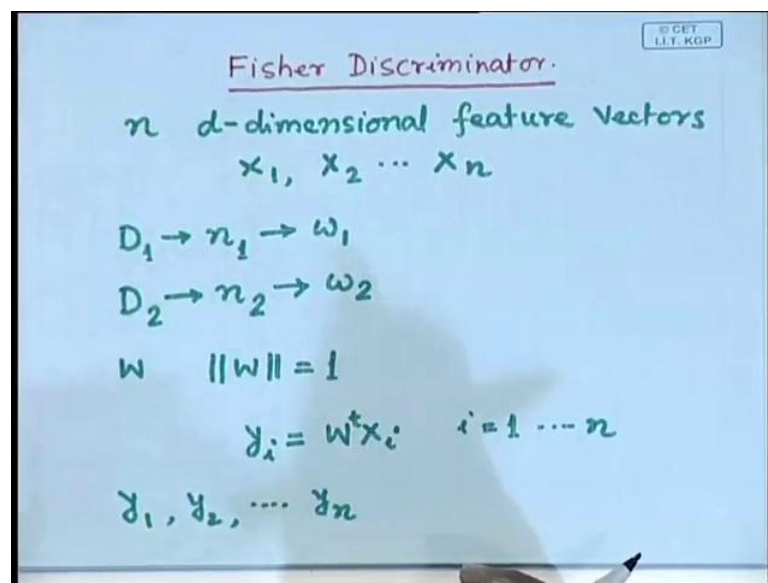 © CET
I.I.T. KGP
Fisher Discriminator.
n d-dimensional feature vectors
x₁, x₂ ... xₙ
D₁ → n₁ → ω₁
D₂ → n₂ → ω₂
W ||W|| = 1
yᵢ = Wᵗxᵢ i = 1 .... n
y₁, y₂, .... yₙ